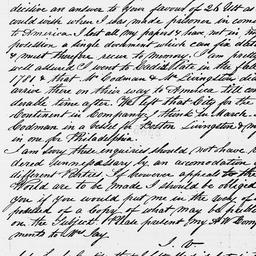 decisive an answer to your favour of 26 Oct as
could wish when I was made prisoner in comi
to America I lost all my papers & have not in m
possession a single document which can fix dates
& must therefore recur to memory. I am perfe
well assured I went to Cadiz Late in the fall
1781 & that Mr Codman & Mr Livingston di
arrive there on their way to America till con
derable time after. We left that City for the
Continent in Company I think in March.
Codman in a vessel for Boston Livingston & m
in one for Philadelphia.
I am sorry these inquiries should not have
dered unnecessary by an accomodation
different Parties. If however appeals to the
World are to be made I should be obliged
you if you would put me in the way of
possessed of a Copy of what may be publis
on the Subject. Please present my & Ws Comp
ments to Mrs Jay.